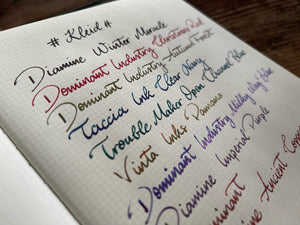 # Kleid #
Diamine Winter Miracle
Dominant Industry Christmas Red
Dominant Industry Autumn Forest
Taccia Ink Clear Navy
Trouble Maker Open Channel Blue
Vinta Inks Damana
Dominant Industry Milky Way Blue
Diamine Imperial Purple
Dominant
Ancient